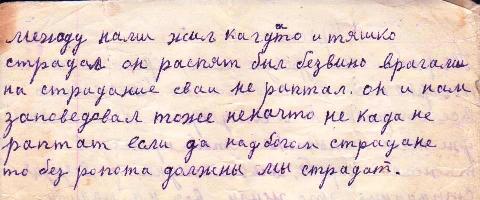 между нами жил кагдато и тяшко
страдал он распят был безвино врагами
на страдание сваи не раптал. он и нам
заповедовал тоже неначто не када не
раптат если да надбогом страдане
то без ропота должны мы страдат.